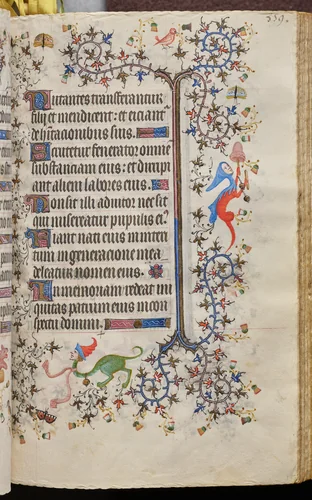 Nutantes transferantur
filii et mendicent: et eiciant
de habitacionibus suis.
Scrutetur fenerator omne
substanciam eius: et diripi
ant alieni labores eius.
Non sit illi adiutor nec sit
qui misereatur pupillis ei9.
Fiant nati eius in interi
tum in generacione una
deleatur nomen eius.
In memoriam redeat ini
quitas patrum eius in con
spectu domini.